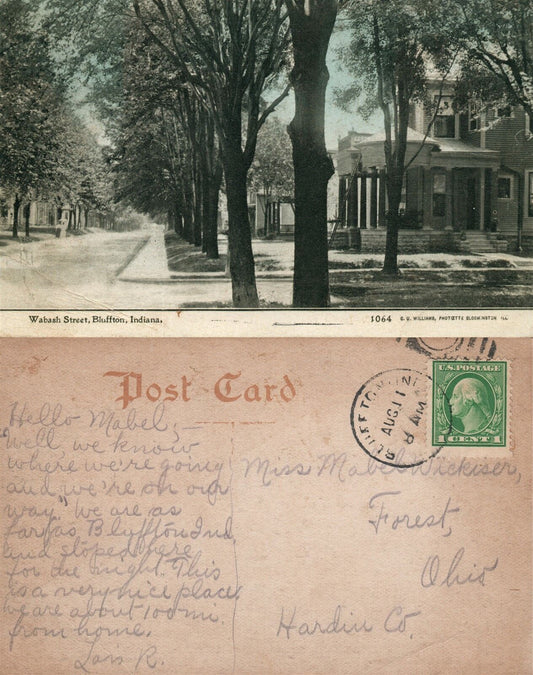 Wabash Street, Bluffton, Indiana.
1064 C. U. WILLIAMS, PHOTOETTE BLOOMINGTON ILL
Post Card
U.S. POSTAGE
1 CENT 1
BLUFFTON
AUG 11
8 AM
Hello Mabel,-
"Well, we know
where we're going
and we're on our
way." We are as
far as Bluffton Ind,
and stoped here
for the night. This
is a very nice place
we are about 100 mi.
from home.
Lois R.
Miss Mabel Wickiser,
Forest,
Ohio
Hardin Co.